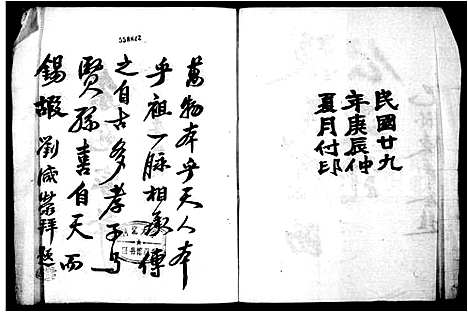 民國廿九
年庚辰仲
夏月付印
萬物本乎天人本
乎祖一脉相承傳
之自古多孝子与
賢孫喜自天而
錫嘏 劉咸榮拜題